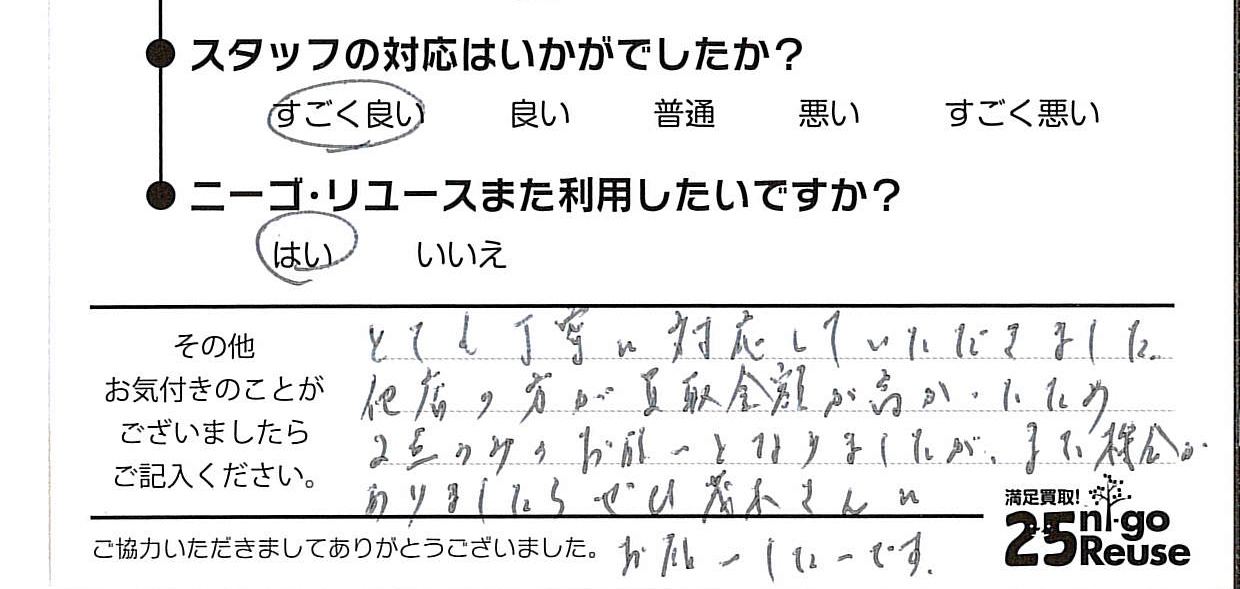 スタッフの対応はいかがでしたか？
すごく良い 良い 普通 悪い すごく悪い
ニーゴ・リユースまた利用したいですか？
はい いいえ
その他
お気付きのことが
ございましたら
ご記入ください。
とても丁寧に対応していただきました。
他店の方が買取金額が高かったため
2点のみのお願いとなりましたが、また機会が
ありましたらぜひ茂木さんに
お願いしたいです。
ご協力いただきましてありがとうございました。
満足買取!
25 ni-go
Reuse